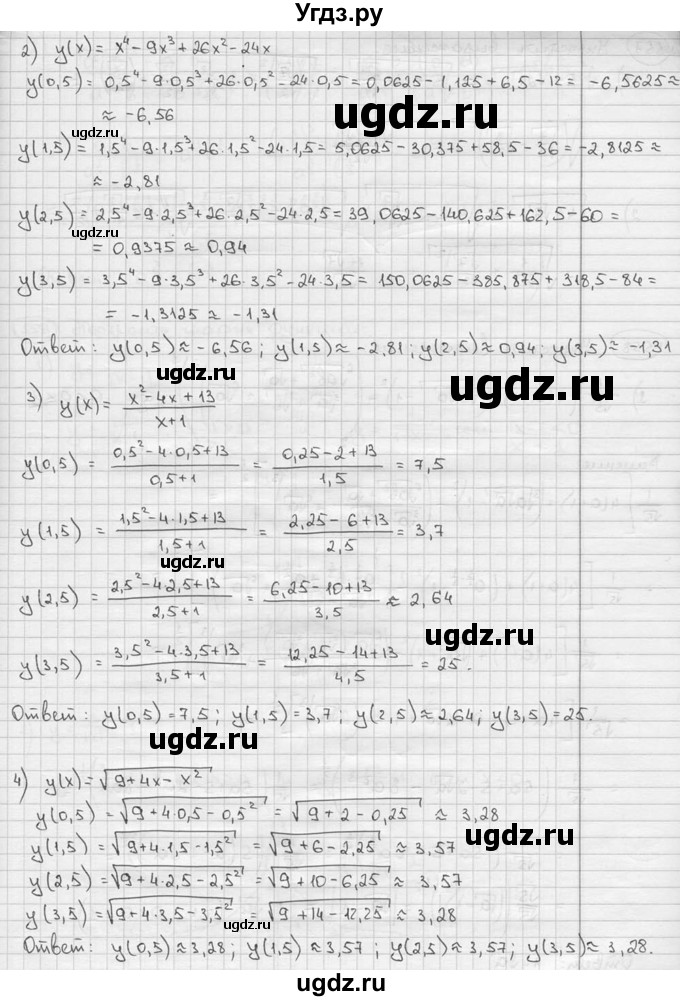 Угдз.ру
2) y(x) = x⁴ - 9x³ + 26x² - 24x
y(0,5) = 0,5⁴ - 9·0,5³ + 26·0,5² - 24·0,5 = 0,0625 - 1,125 + 6,5 - 12 = -6,5625 ≈
≈ -6,56
ugdz.ru
ugdz.ru
y(1,5) = 1,5⁴ - 9·1,5³ + 26·1,5² - 24·1,5 = 5,0625 - 30,375 + 58,5 - 36 = -2,8125 ≈
≈ -2,81
y(2,5) = 2,5⁴ - 9·2,5³ + 26·2,5² - 24·2,5 = 39,0625 - 140,625 + 162,5 - 60 =
ugdz.ru
= 0,9375 ≈ 0,94
y(3,5) = 3,5⁴ - 9·3,5³ + 26·3,5² - 24·3,5 = 150,0625 - 385,875 + 318,5 - 84 =
= -1,3125 ≈ -1,31
Ответ: y(0,5) ≈ -6,56; y(1,5) ≈ -2,81; y(2,5) ≈ 0,94; y(3,5) ≈ -1,31
ugdz.ru
ugdz.ru
3) y(x) = (x² - 4x + 13)/(x + 1)
y(0,5) = (0,5² - 4·0,5 + 13)/(0,5 + 1) = (0,25 - 2 + 13)/1,5 = 7,5
y(1,5) = (1,5² - 4·1,5 + 13)/(1,5 + 1) = (2,25 - 6 + 13)/2,5 = 3,7
ugdz.ru
y(2,5) = (2,5² - 4·2,5 + 13)/(2,5 + 1) = (6,25 - 10 + 13)/3,5 ≈ 2,64
ugdz.ru
y(3,5) = (3,5² - 4·3,5 + 13)/(3,5 + 1) = (12,25 - 14 + 13)/4,5 = 25.
Ответ: y(0,5) = 7,5; y(1,5) = 3,7; y(2,5) ≈ 2,64; y(3,5) = 25.
ugdz.ru
4) y(x) = √(9 + 4x - x²)
y(0,5) = √(9 + 4·0,5 - 0,5²) = √(9 + 2 - 0,25) ≈ 3,28
ugdz.ru
y(1,5) = √(9 + 4·1,5 - 1,5²) = √(9 + 6 - 2,25) ≈ 3,57
y(2,5) = √(9 + 4·2,5 - 2,5²) = √(9 + 10 - 6,25) ≈ 3,57
y(3,5) = √(9 + 4·3,5 - 3,5²) = √(9 + 14 - 12,25) ≈ 3,28
ugdz.ru
Ответ: y(0,5) ≈ 3,28; y(1,5) ≈ 3,57; y(2,5) ≈ 3,57; y(3,5) ≈ 3,28.
ugdz.ru